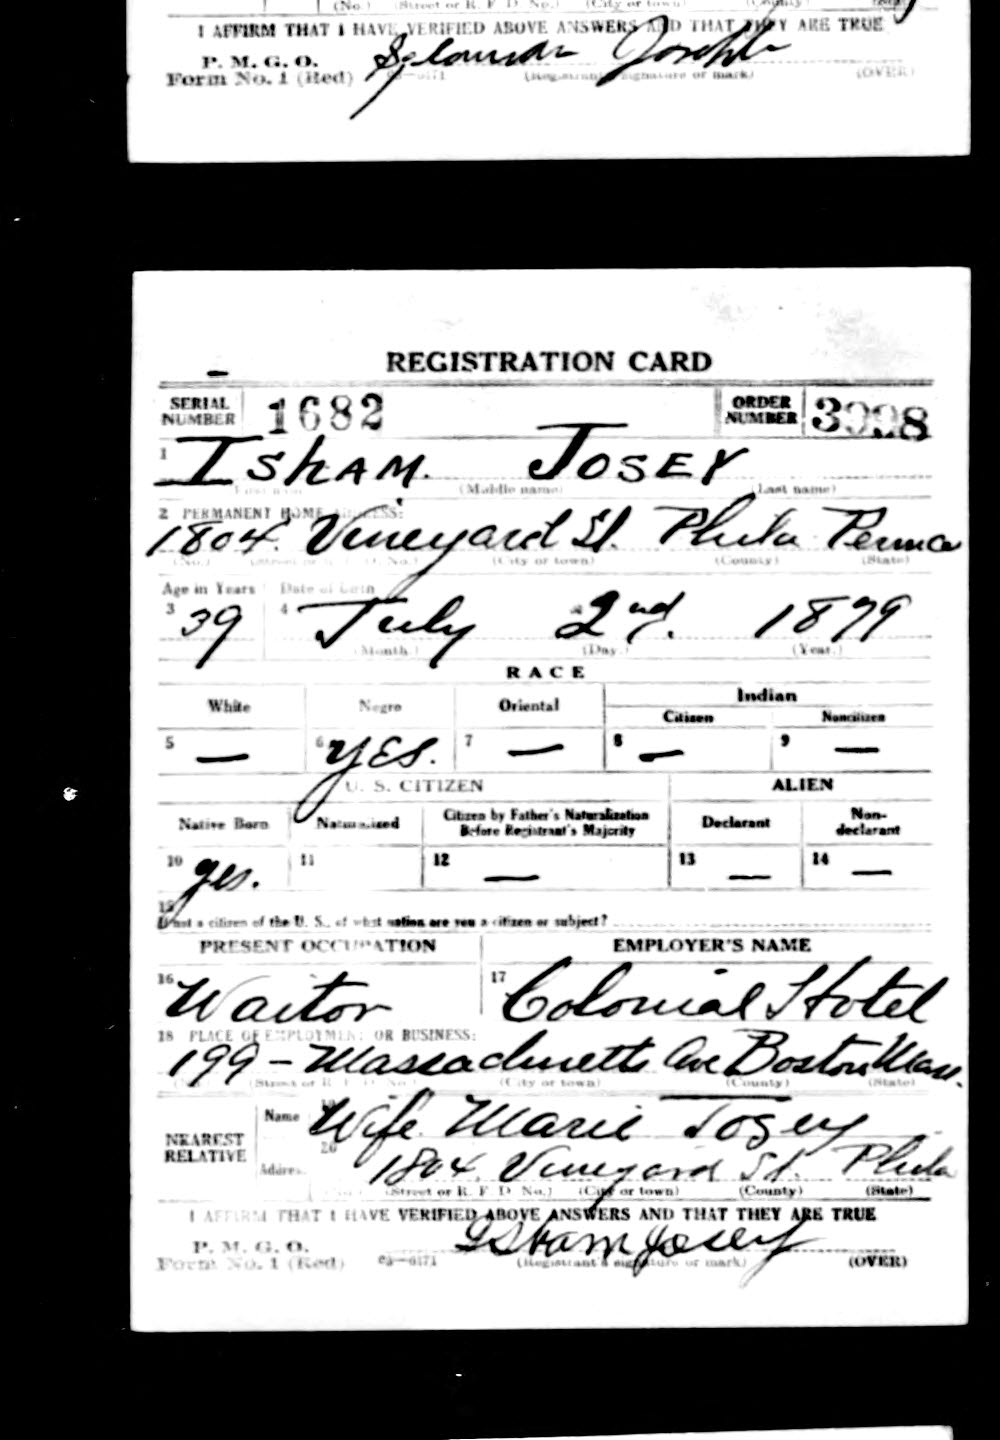 (No.) (Street or R. F. D. No.) (City or town) (County)
I AFFIRM THAT I HAVE VERIFIED ABOVE ANSWERS AND THAT THEY ARE TRUE
P. M. G. O.
Form No. 1 (Red) 03—6171 (Registrant's signature or mark) (OVER)
Joseph
REGISTRATION CARD
SERIAL NUMBER 1682 ORDER NUMBER
1 ISHAM. JOSEY
(Middle name) (Last name)
2 PERMANENT HOME ADDRESS:
1804. Vineyard St. Phila Penna
(No.) (Street or R. F. D. No.) (City or town) (County) (State)
Age in Years Date of Birth
3 39 4 July 2nd. 1879
(Month.) (Day.) (Year.)
RACE
White Negro Oriental Indian
Citizen Noncitizen
5 — 6 YES. 7 — 8 — 9 —
U. S. CITIZEN ALIEN
Native Born Naturalized Citizen by Father's Naturalization Before Registrant's Majority Declarant Non-declarant
10 yes. 11 12 — 13 — 14 —
15
If not a citizen of the U. S., of what nation are you a citizen or subject?
PRESENT OCCUPATION EMPLOYER'S NAME
16 Waitor 17 Colonial Hotel
18 PLACE OF EMPLOYMENT OR BUSINESS:
199 - Massachusetts Ave Boston Mass.
(No.) (Street or R. F. D. No.) (City or town) (County) (State)
NEAREST RELATIVE Name 19 Wife Marie Josey
Address 20 1804. Vineyard St. Phila
(No.) (Street or R. F. D. No.) (City or town) (County) (State)
I AFFIRM THAT I HAVE VERIFIED ABOVE ANSWERS AND THAT THEY ARE TRUE
P. M. G. O. Isham Josey
Form No. 1 (Red) 03—6171 (Registrant's signature or mark) (OVER)